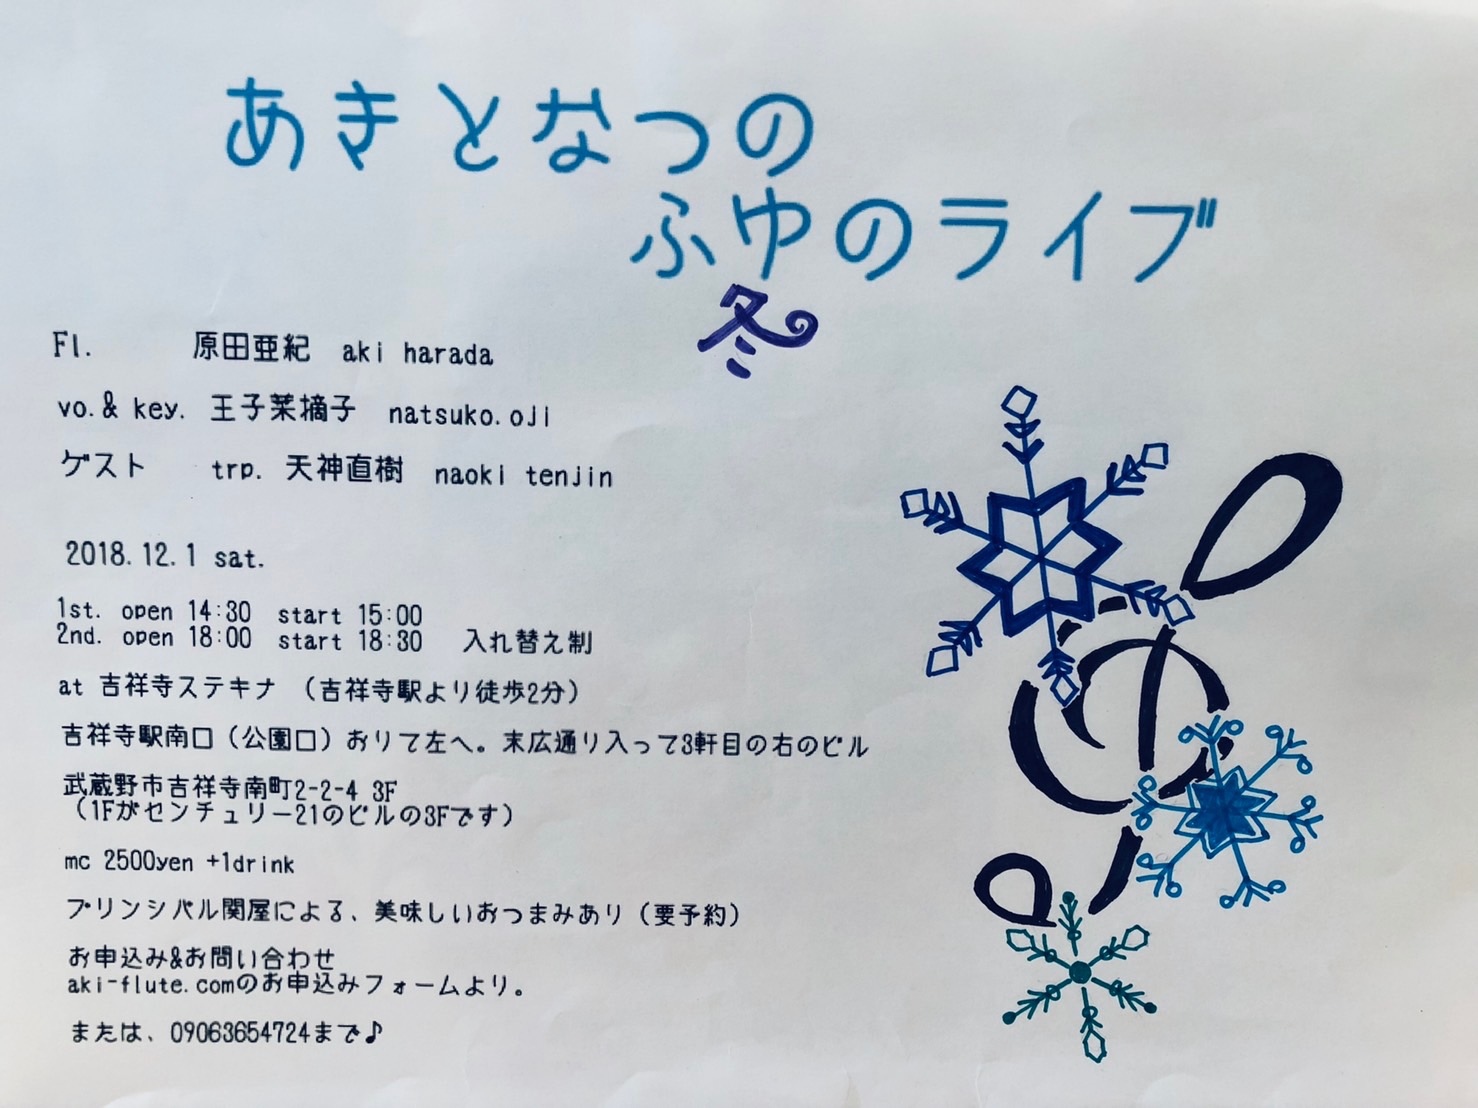 あきとなつの
ふゆのライブ
冬
Fl. 原田亜紀 aki harada
vo.& key. 王子菜摘子 natsuko.oji
ゲスト trp. 天神直樹 naoki tenjin
2018.12.1 sat.
1st. open 14:30 start 15:00
2nd. open 18:00 start 18:30 入れ替え制
at 吉祥寺ステキナ （吉祥寺駅より徒歩2分）
吉祥寺駅南口（公園口）おりて左へ。末広通り入って3軒目の右のビル
武蔵野市吉祥寺南町2-2-4 3F
（1Fがセンチュリー21のビルの3Fです）
mc 2500yen +1drink
プリンシパル関屋による、美味しいおつまみあり（要予約）
お申込み&お問い合わせ
aki-flute.comのお申込みフォームより。
または、09063654724まで♪